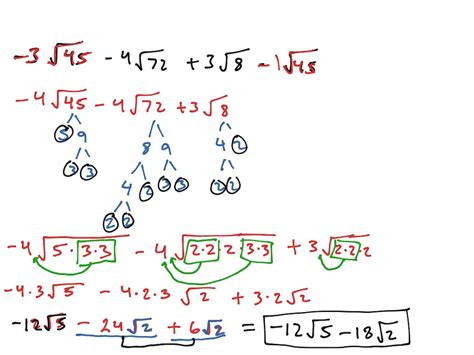 -3√45 - 4√72 + 3√8 - 1√45
-4√45 - 4√72 + 3√8
5 9 8 9 4 2
3 3 4 2 3 3 2 2
2 2
-4√5·3·3 - 4√2·2·2·3·3 + 3√2·2·2
-4·3√5 - 4·2·3√2 + 3·2√2
-12√5 - 24√2 + 6√2 = -12√5 - 18√2